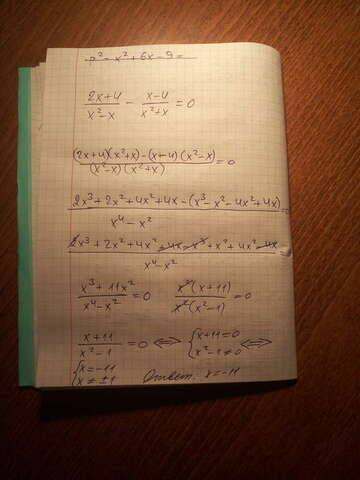 p² - x² + 6x - 9 =
(2x+4)/(x²-x) - (x-4)/(x²+x) = 0
((2x+4)(x²+x) - (x-4)(x²-x))/((x²-x)(x²+x)) = 0
(2x³ + 2x² + 4x² + 4x - (x³ - x² - 4x² + 4x))/(x⁴ - x²) =
(2x³ + 2x² + 4x² + 4x - x³ + x² + 4x² - 4x)/(x⁴ - x²)
(x³ + 11x²)/(x⁴ - x²) = 0 (x²(x+11))/(x²(x²-1)) = 0
(x+11)/(x²-1) = 0 ⟺ { x+11=0 x²-1≠0 ⟺
{ x=-11 x≠±1 Ответ. x=-11